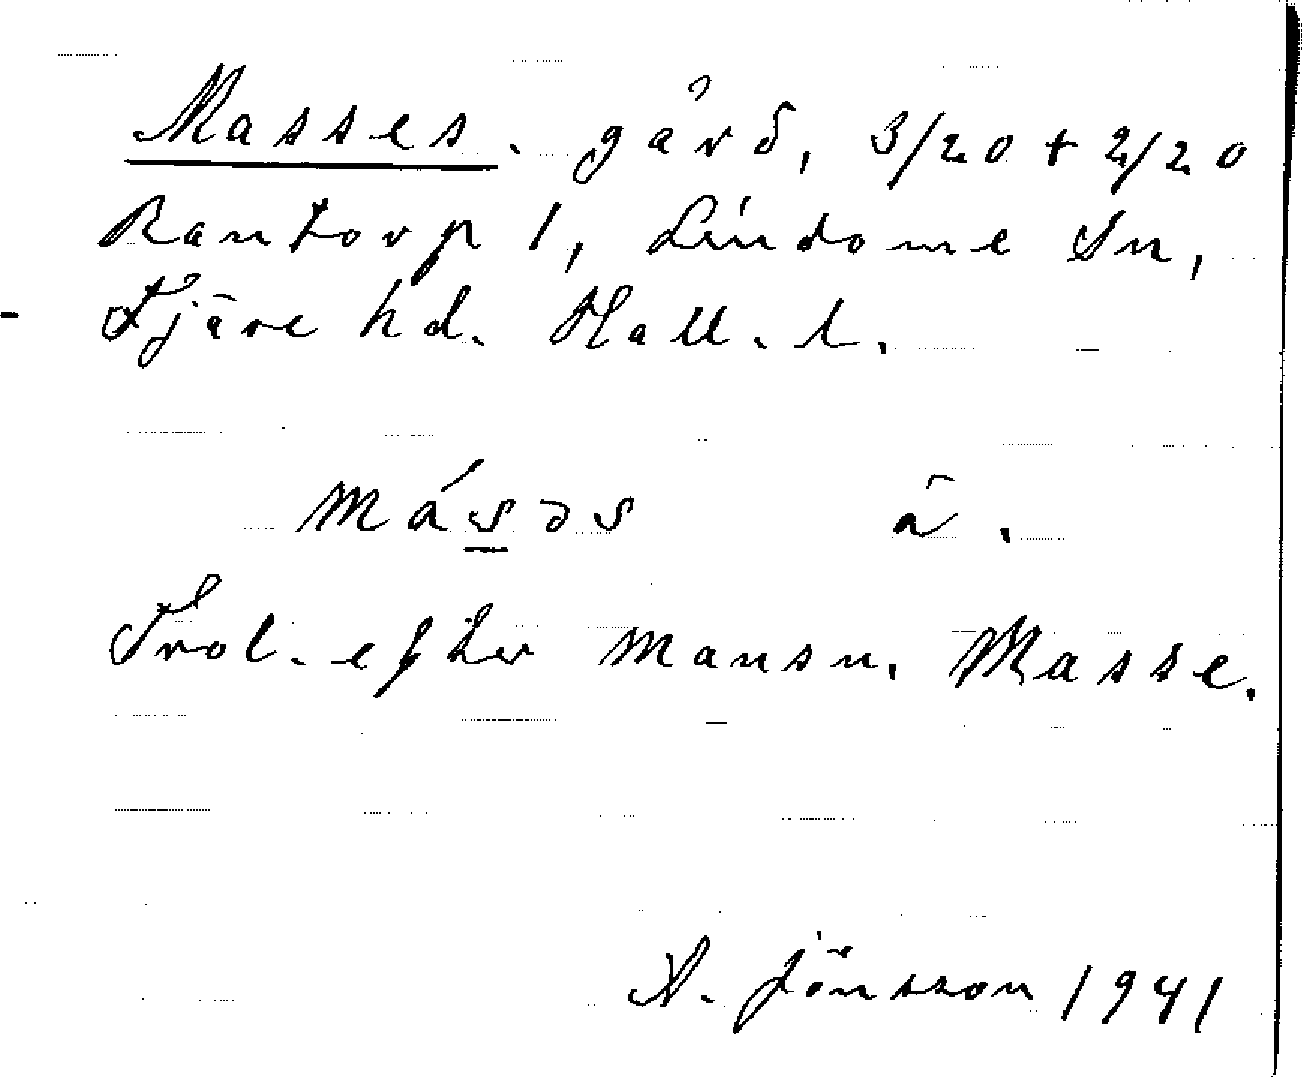 Masses. gård, 3/20 + 2/20
Rantorp 1, Lindome Sn,
Fjäre hd. Hall. l.
másəs â.
Trol. efter mansn. Masse.
A. Jönsson 1941